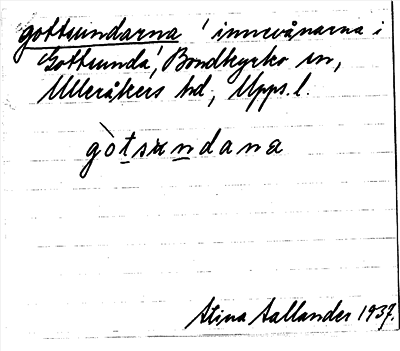 gottsundarna 'innevånarna i
Gottsunda', Bondkyrko sn,
Ulleråkers hd, Upps.l.
gòtsundana
Stina Aallander 1937.